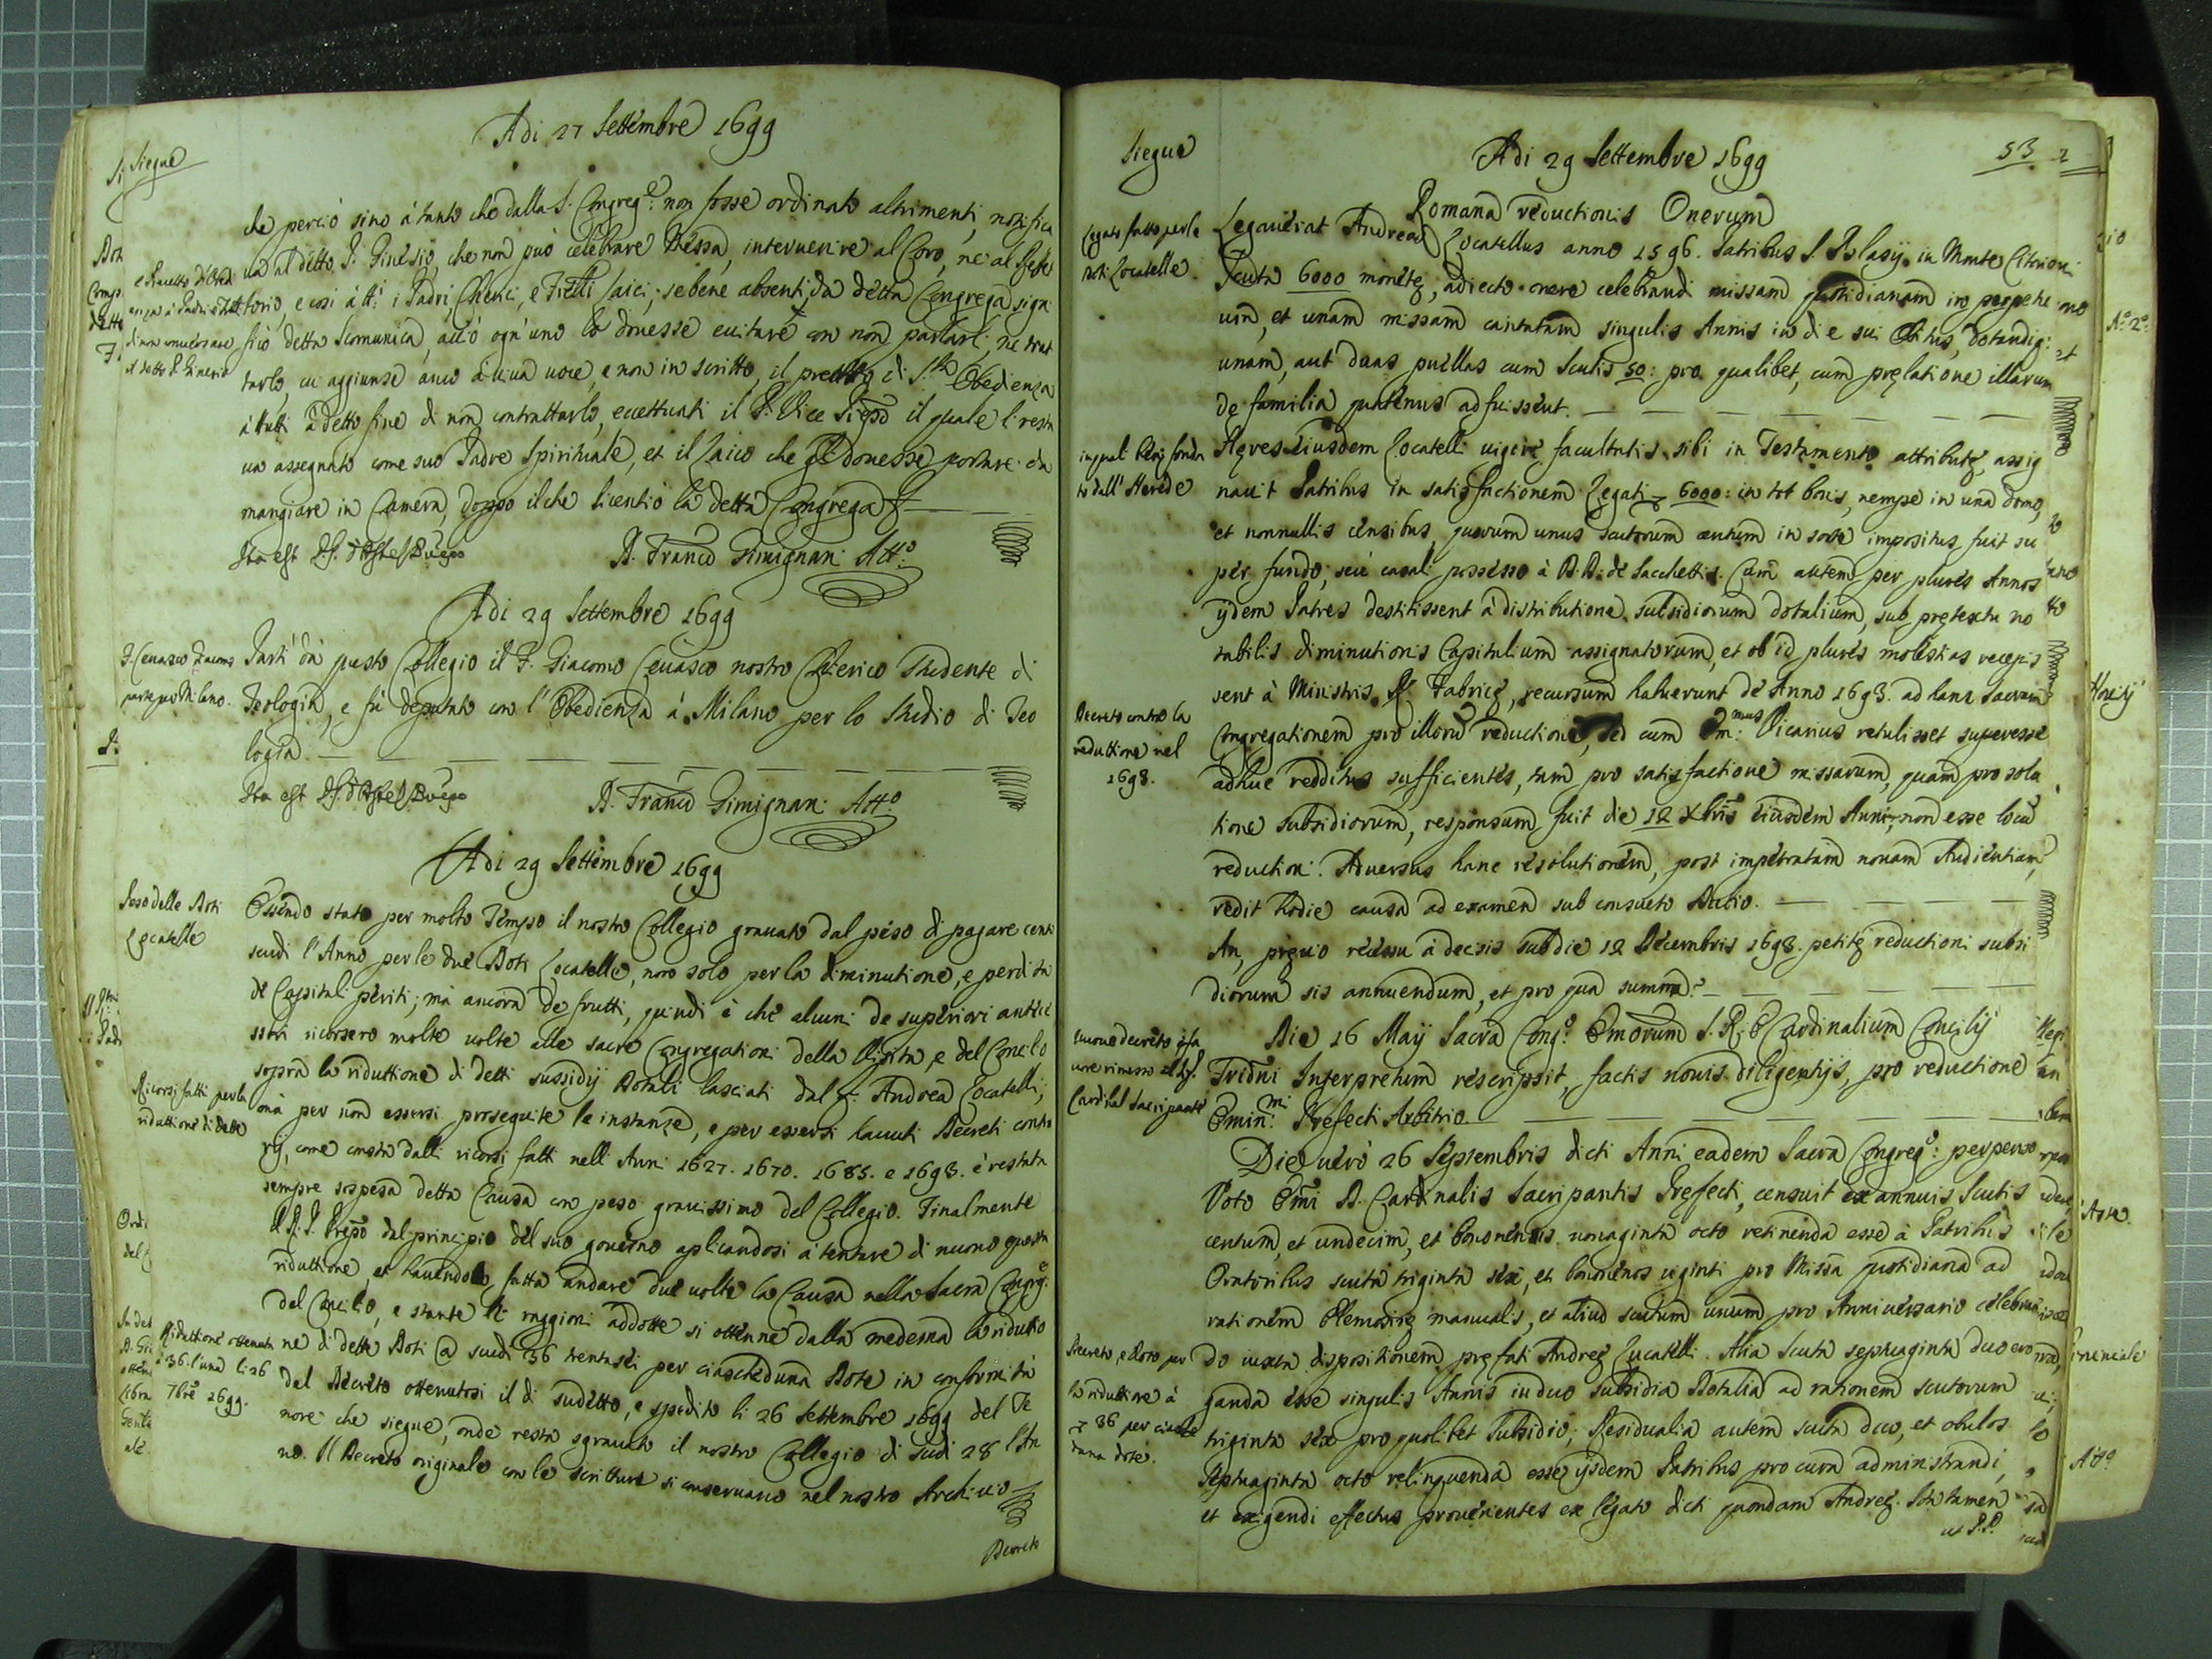 Siegue
Adi 27 Settembre 1699
che perciò sino à tanto che dalla S. Congreg.e non fosse ordinato altrimenti, notifica
va al detto P. Ginesio, che non può celebrare Messa, intervenire al Coro, né al Refet
torio, e così à tt.i i Padri, Cherici, e Frelli laici, sebene absenti da detta Congrega signi
ficò detta scomunica, acciò ogn'uno lo dovesse evitare con non parlarli, ne trat
tarlo, cui aggiunse anco à viva voce, e non in scritto, il precetto di S.ta Obedienza
à tutti à detto fine di non contrattarlo, eccettuati il P. Vice Prep.o il quale li resta
va assegnato come suo Padre Spirituale, et il laico che gli dovesse portare da
mangiare in Camera, doppo il che licentiò la detta Congrega
e Precetto d'Obed
enza à Padri e Frelli
di non conversare
il detto P. Ginesio
Ita est
D. Franco Gimignani Att.o
Adi 29 Settembre 1699
P. Cevasco Giacomo
parte per Milano.
Partì da questo Collegio il P. Giacomo Cevasco nostro Cherico studente di
Teologia, e fù deputato con l'Obedienza à Milano per lo studio di Teo
logia.
Ita est
D. Franco Gimignani Att.o
Adi 29 Settembre 1699
Peso delle Doti
Locatelle
Essendo stato per molto tempo il nostro Collegio gravato dal peso di pagare cento
scudi l'Anno per le due Doti Locatelle, non solo per la diminutione, e perdita
de Capitali periti; mà ancora de frutti, quindi è che alcuni de superiori antece
ssori ricorsero molte volte alle sacre Congregationi della Visita, e del Concilio
sopra la riduttione di detti sussidij Dotali lasciati dal q. Andrea Locatelli;
mà per non essersi proseguite le instanze, e per essersi havuti Decreti contra
rij, come consta dalli ricorsi fatti nelli Anni 1627. 1670. 1685. e 1698. è restata
sempre sospesa detta Causa con peso gravissimo del Collegio. Finalmente
Ricorsi fatti per la
riduttione di dette
il P. Prep.o dal principio del suo governo aplicandosi à tentare di nuovo questa
riduttione, et havendo fatta andare due volte la Causa nella Sacra Congreg.e
del Concilio, e stante le raggioni addotte si ottenne dalla medema la riduttio
ne di dette Doti @ scudi 36 trentasei per ciascheduna Dote in conformità
del Decreto ottenutosi il di sudetto, e spedito li 26 Settembre 1699 del Te
nore che siegue, onde resta sgravato il nostro Collegio di scudi 28 l'An
no. Il Decreto originale con le scritture si conservano nel nostro Archivio
Riduttione ottenuta
à 36. l'una li 26
7bre 1699.
Decreto
Siegue
Adi 29 Settembre 1699
53
Romana reductionis Onerum
Legato fatto per le
doti Locatelle.
Legaverat Andreas Locatellus anno 1596. Patribus S. Blasij in Monte Citriori
scuta 6000 monetę, adiecto onere celebrandi missam quotidianam in perpetu
um, et unam missam cantatam singulis Annis in die sui Obitus, dotandiq:
unam, aut duas puellas cum scutis 50: pro qualibet, cum pręlatione illarum
de familia quatenus adfuissent.
in quali beni fonda
to dall'Herede
Hęres eiusdem Locatelli vigore facultatis sibi in Testamento attributę, assig
navit Patribus in satisfactionem Legati 6000: in tot bonis, nempe in una domo,
et nonnullis censibus, quorum unus scutorum centum in sorte impositus fuit su
per fundo, seu casali possesso à D.D. de Sacchettis. Cum autem per plures Annos
ijdem Patres destitissent à distributione subsidiorum dotalium, sub prętextu no
tabilis diminutionis Capitalium assignatorum, et ob id plures molestias recepis
sent à Ministris R. Fabricę, recursum habuerunt de Anno 1698. ad hanc Sacram
Congregationem pro illorum reductione, sed cum Em.mus Vicarius retulisset superesse
adhuc redditus sufficientes, tum pro satisfactione missarum, quam pro solu
tione subsidiorum, responsum fuit die 12 Xbris eiusdem Anni, non esse locum
reductioni. Adversus hanc resolutionem, post impetratam novam Audientiam,
redit hodie causa ad examen sub consueto Dubio.
Decreto contro la
reduttione nel
1698.
An, pręvio recessu à decisis sub die 12 Decembris 1698. petitę reductioni subsi
diorum sis annuendum, et pro qua summa?
Die 16 Maij Sacra Cong.e Emorum S. R. E. Cardinalium Concilij
Tridni Interpretum rescripsit, factis novis diligentijs, pro reductione
Emin.mi Pręfecti Arbitrio.
Die verò 26 Septembris dicti Anni eadem Sacra Congreg.e: perpenso
Voto Emi D. Cardinalis Sacripantis Pręfecti, censuit ex annuis scutis
centum, et undecim, et bononenis nonaginta octo retinenda esse à Patribus
Oratoribus scuta triginta sex, et bononenos viginti pro Missa quotidiana ad
rationem Elemosinę manualis, et aliud scutum unum pro Anniversario celebran
do iuxta dispositionem pręfati Andreę Lucatelli. Alia scuta septuaginta duo ero
ganda esse singulis Annis in duo subsidia Dotalia ad rationem scutorum
triginta sex pro quolibet subsidio; Residualia autem scuta duo, et obulos
septuaginta octo relinquenda esse ijsdem Patribus pro cura administrandi,
et exigendi effectus provenientes ex legato dicti quondam Andreę. Ita tamen
Decreto, e Voto per
la riduttione à
36 per ciasche
duna dote.
ut P.P.